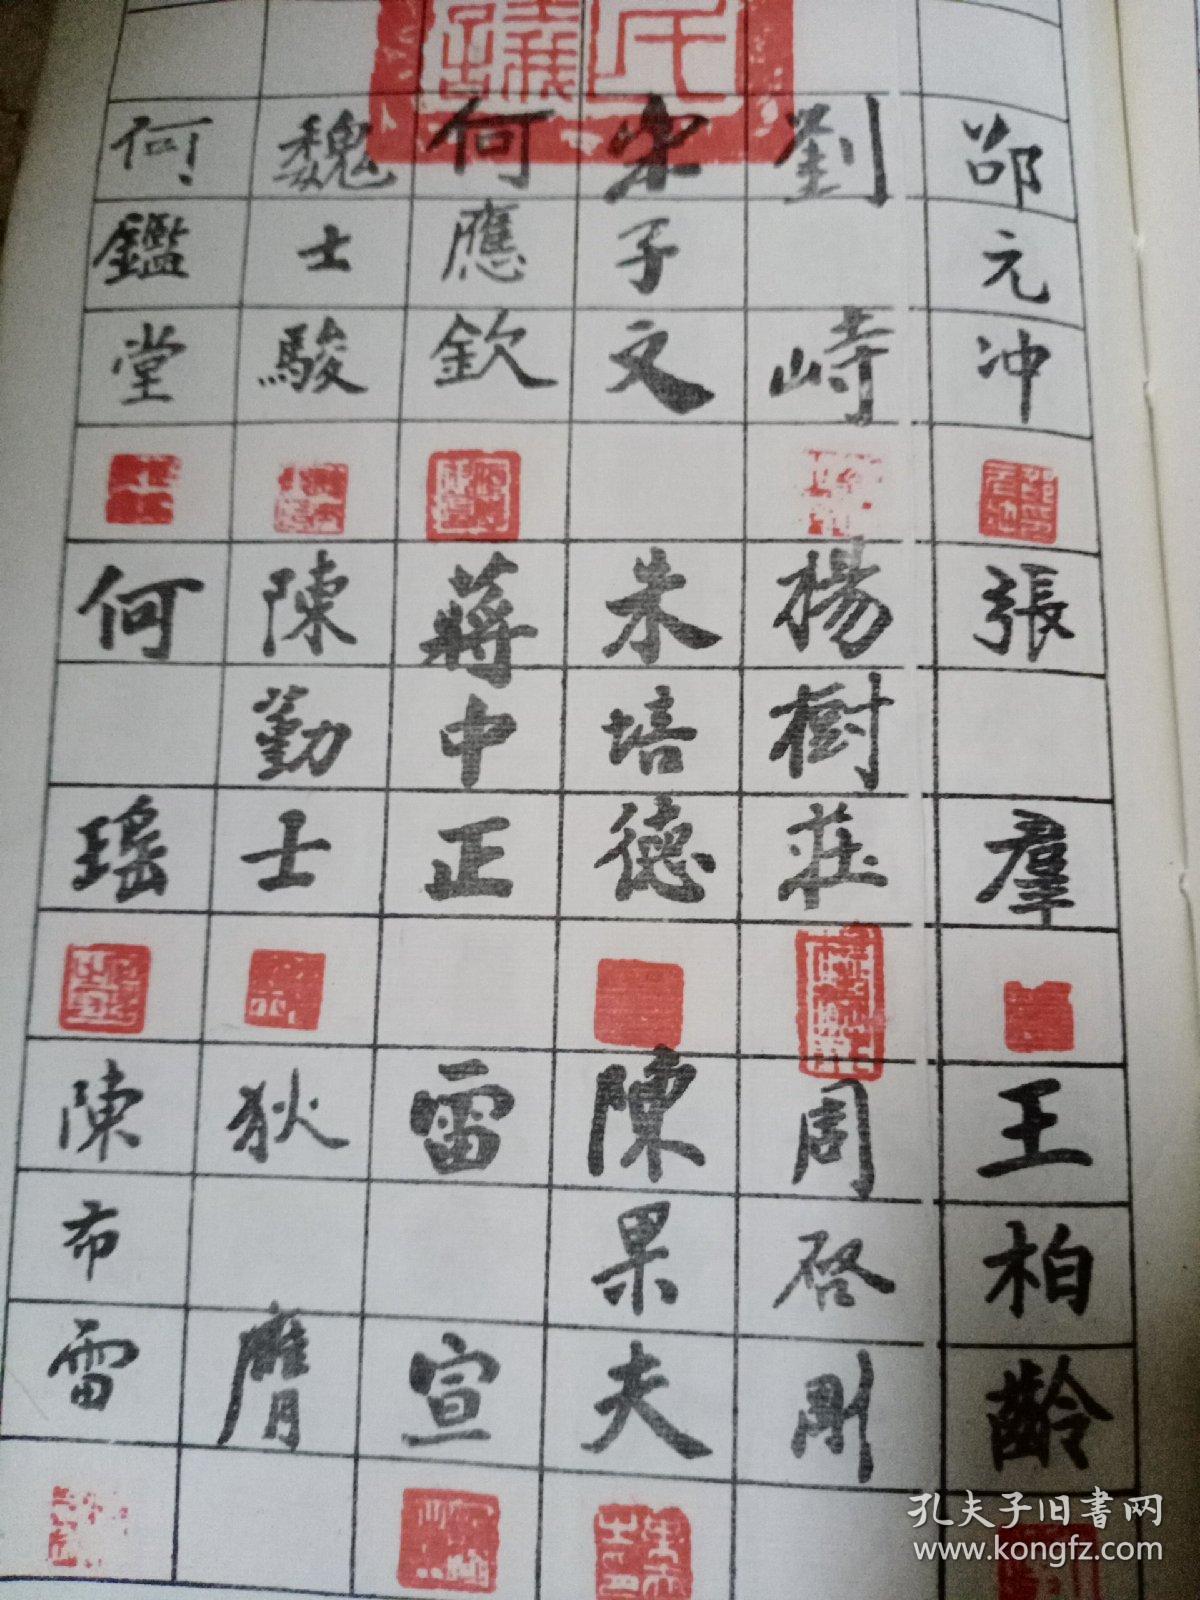 邵元冲
張羣
王柏齡
劉峙
楊樹莊
周啓剛
宋子文
朱培德
陳果夫
何應欽
蔣中正
雷宣
魏士駿
陳勤士
狄膺
何鑑堂
何瑶
陳布雷
孔夫子旧書网
www.kongfz.com